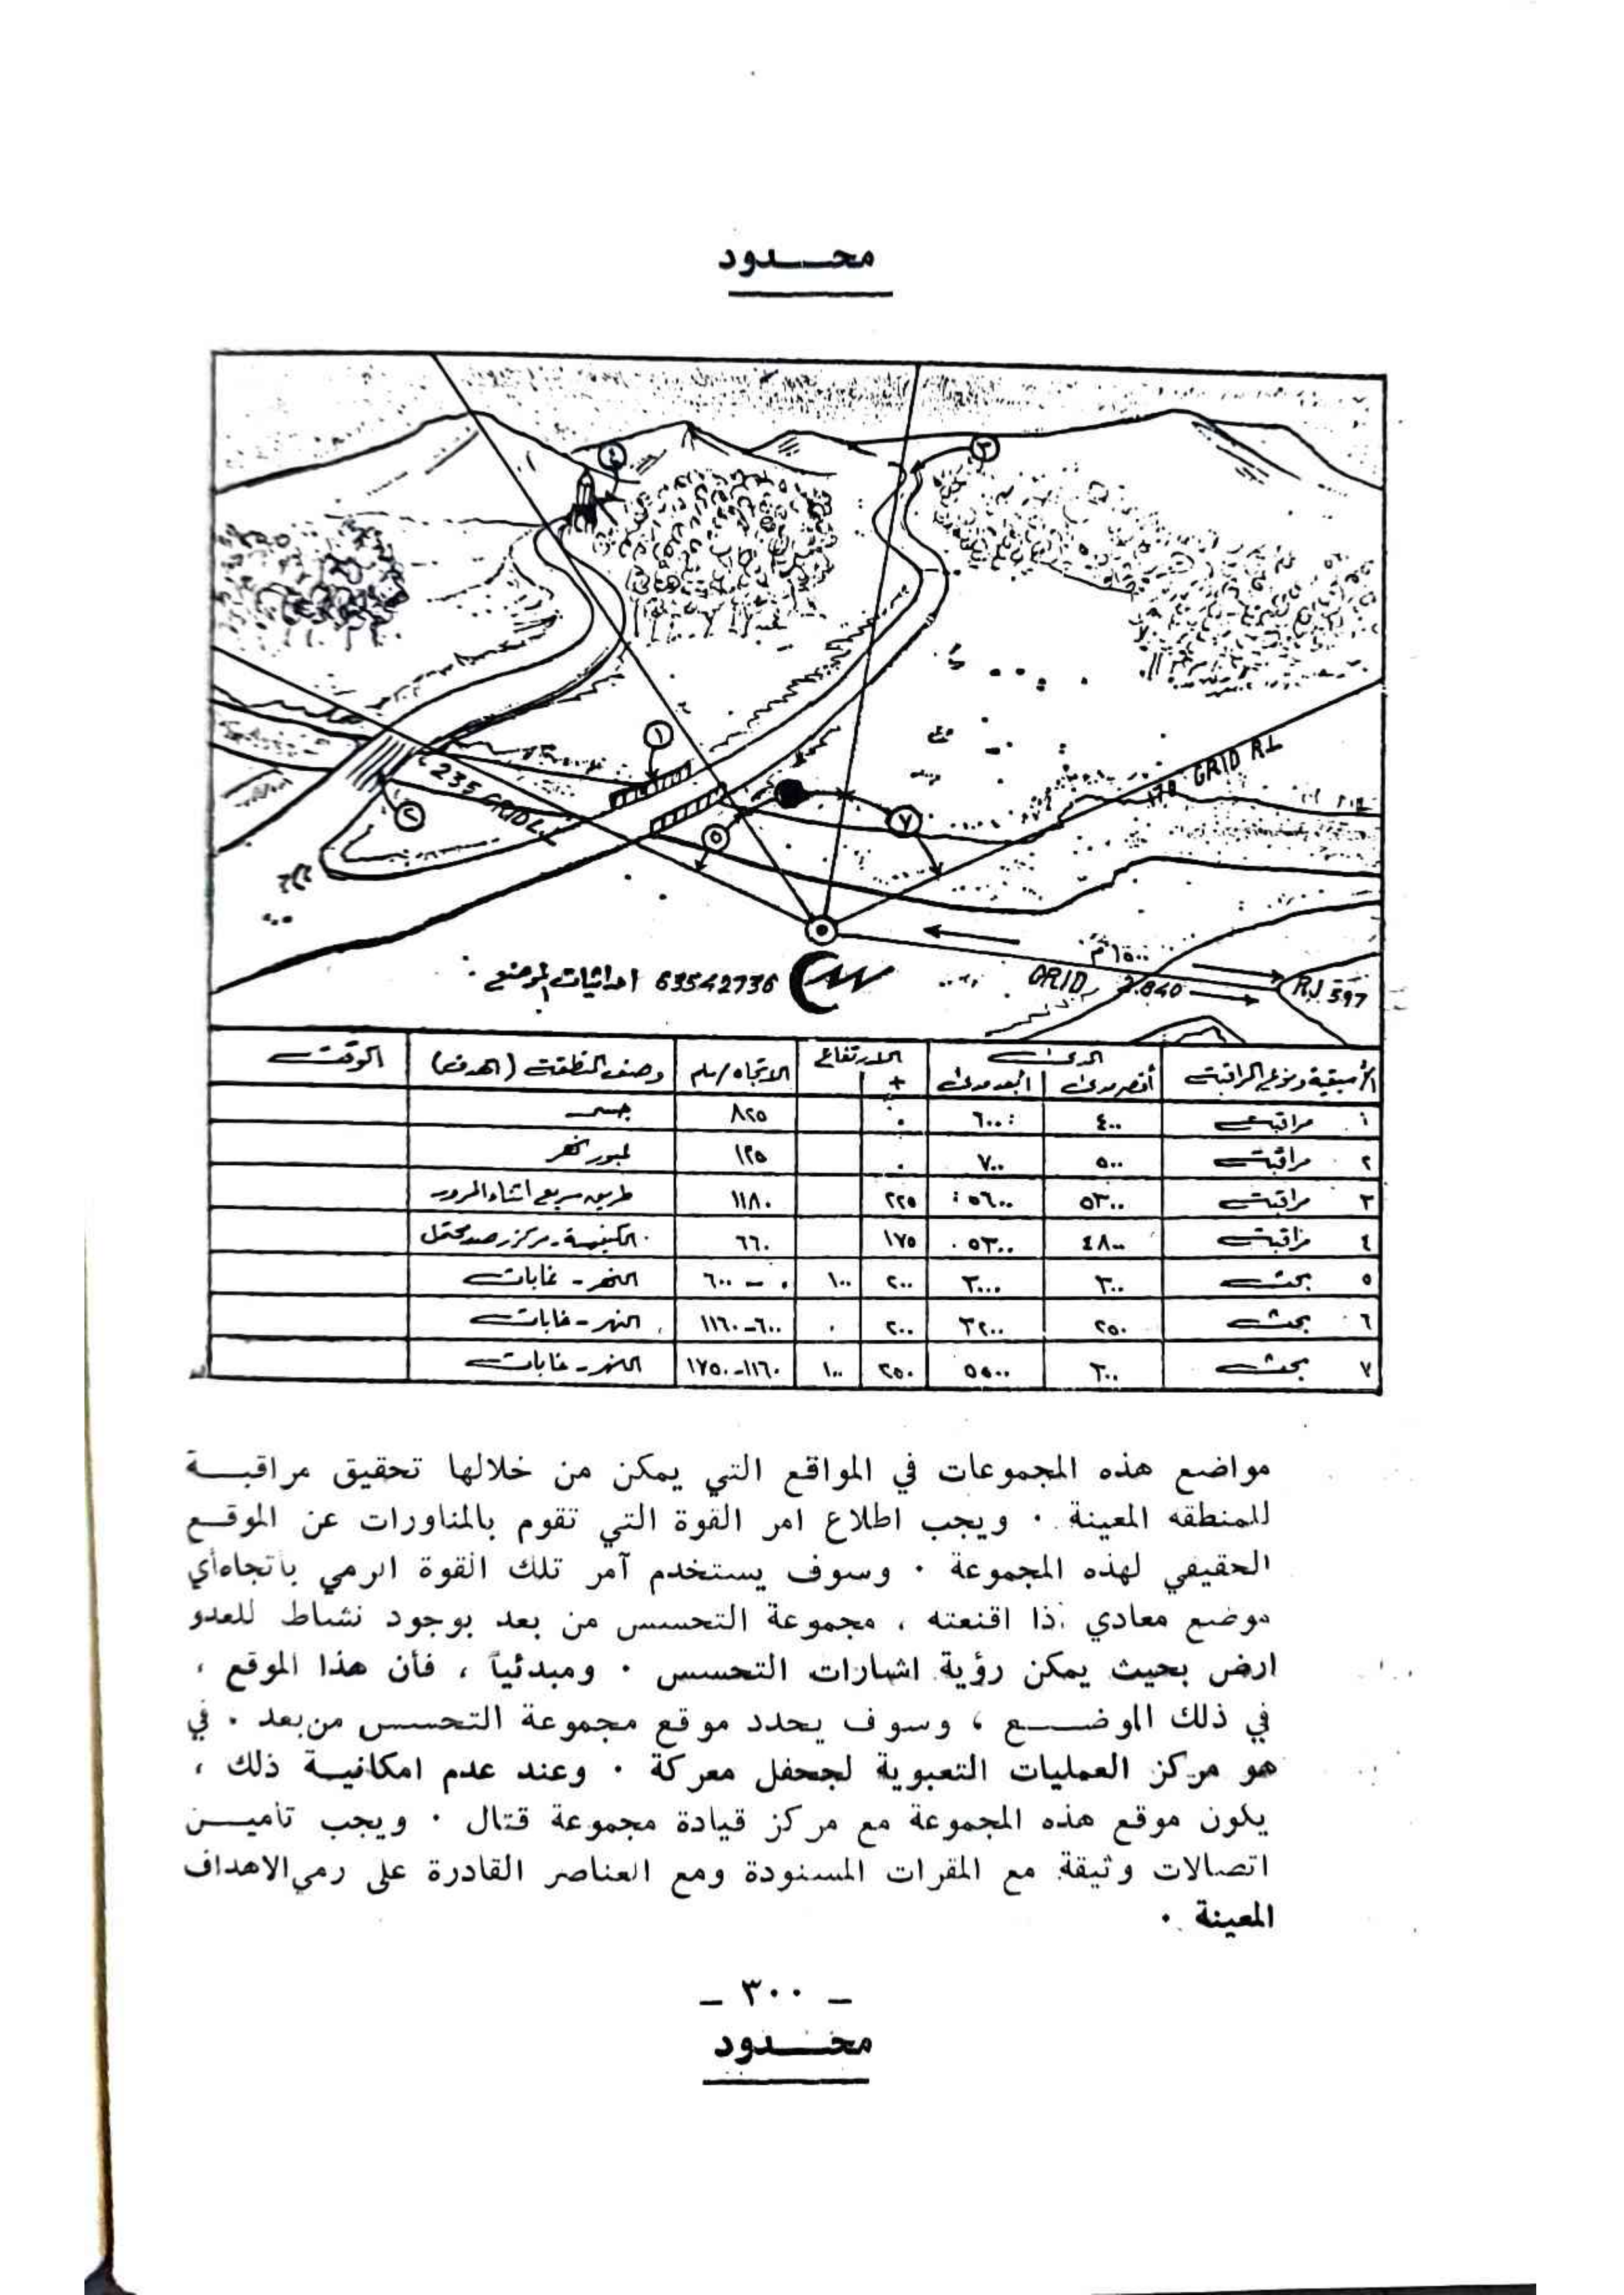 محـــدود
٤
٣
١
235 GRID L.L
٢
٥
٧
GRID R.L
١٥٠٠م
GRID 2.840
RJ 597
احداثيات الموضع 63542736
الأسبقية ونوع المراقبة | المدى | أقصر مدى | أبعد مدى | الارتفاع | + | الاتجاه/ملم | وصف المنطقة (الهدف) | الوقت
١ مراقبة | ٤٠٠ | ٦٠٠ | ٠ | ٨٢٥ | جسر
٢ مراقبة | ٥٠٠ | ٧٠٠ | ٠ | ١٢٥ | نهر
٣ مراقبة | ٥٣٠٠ | ٥٦٠٠ | ٢٢٥ | ١١٨٠ | طريق سريع اثناء المرور
٤ مراقبة | ٤٨٠٠ | ٥٣٠٠ | ١٧٥ | ٦٦٠ | الكنيسة - مركز رصد محتمل
٥ بحث | ٣٠٠ | ٣٠٠٠ | ٢٠٠ | ١٠٠ | ٠ - ٦٠٠ | النهر - غابات
٦ بحث | ٢٥٠ | ٣٢٠٠ | ٢٠٠ | ٠ | ٦٠٠-١١٦٠ | النهر - غابات
٧ بحث | ٣٠٠ | ٥٥٠٠ | ٢٥٠ | ١٠٠ | ١١٦٠-١٧٥٠ | النهر - غابات
مواضع هذه المجموعات في المواقع التي يمكن من خلالها تحقيق مراقبـــة
للمنطقه المعينة ٠ ويجب اطلاع امر القوة التي تقوم بالمناورات عن الموقــع
الحقيقي لهذه المجموعة ٠ وسوف يستخدم آمر تلك القوة الرمي باتجاه أي
موضع معادي إذا اقنعته ، مجموعة التحسس من بعد بوجود نشاط للعدو
ارض بحيث يمكن رؤية اشارات التحسس ٠ ومبدئياً ، فأن هذا الموقع ،
في ذلك الموضــــع ، وسوف يحدد موقع مجموعة التحسس من بعد ٠ في
هو مركز العمليات التعبوية لجحفل معركة ٠ وعند عدم امكانيـــة ذلك ،
يكون موقع هذه المجموعة مع مركز قيادة مجموعة قتال ٠ ويجب تأميـــن
اتصالات وثيقة مع المقرات المسنودة ومع العناصر القادرة على رمي الاهداف
المعينة ٠
ـ ٣٠٠ ـ
محـــدود